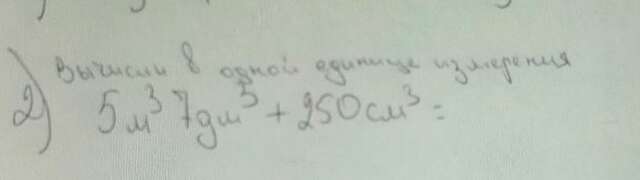 2) Вычисли в одной единице измерения
5м³ 7дм³ + 250см³ =